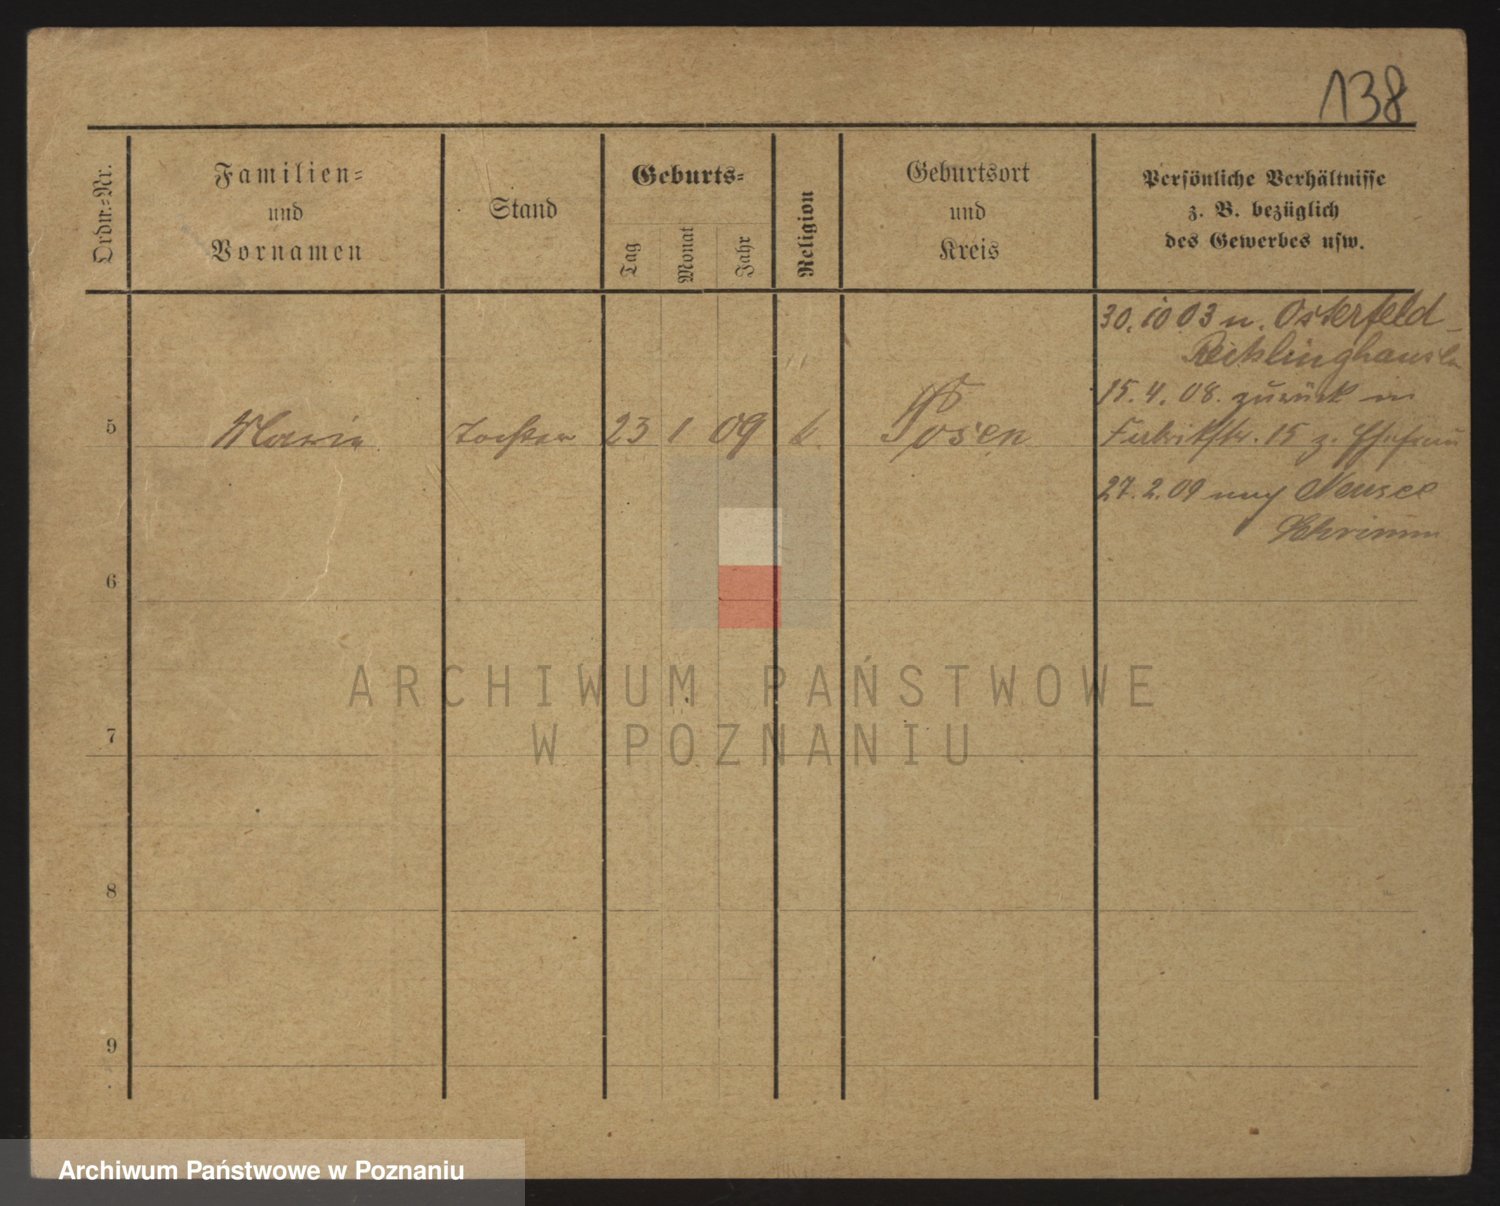 138
Ordn.-Nr.
Familien-
und
Vornamen
Stand
Geburts-
Tag
Monat
Jahr
Religion
Geburtsort
und
Kreis
Persönliche Verhältnisse
z. B. bezüglich
des Gewerbes usw.
30. 10 03 n. Osterfeld-
Recklinghausen
15. 4. 08. zurück in
5 Marie Tochter 23 1 09 k. Posen
15 z.
27. 2. 09 nach Neusee
Schrimm
6
7
8
9
ARCHIWUM PAŃSTWOWE
W POZNANIU
Archiwum Państwowe w Poznaniu